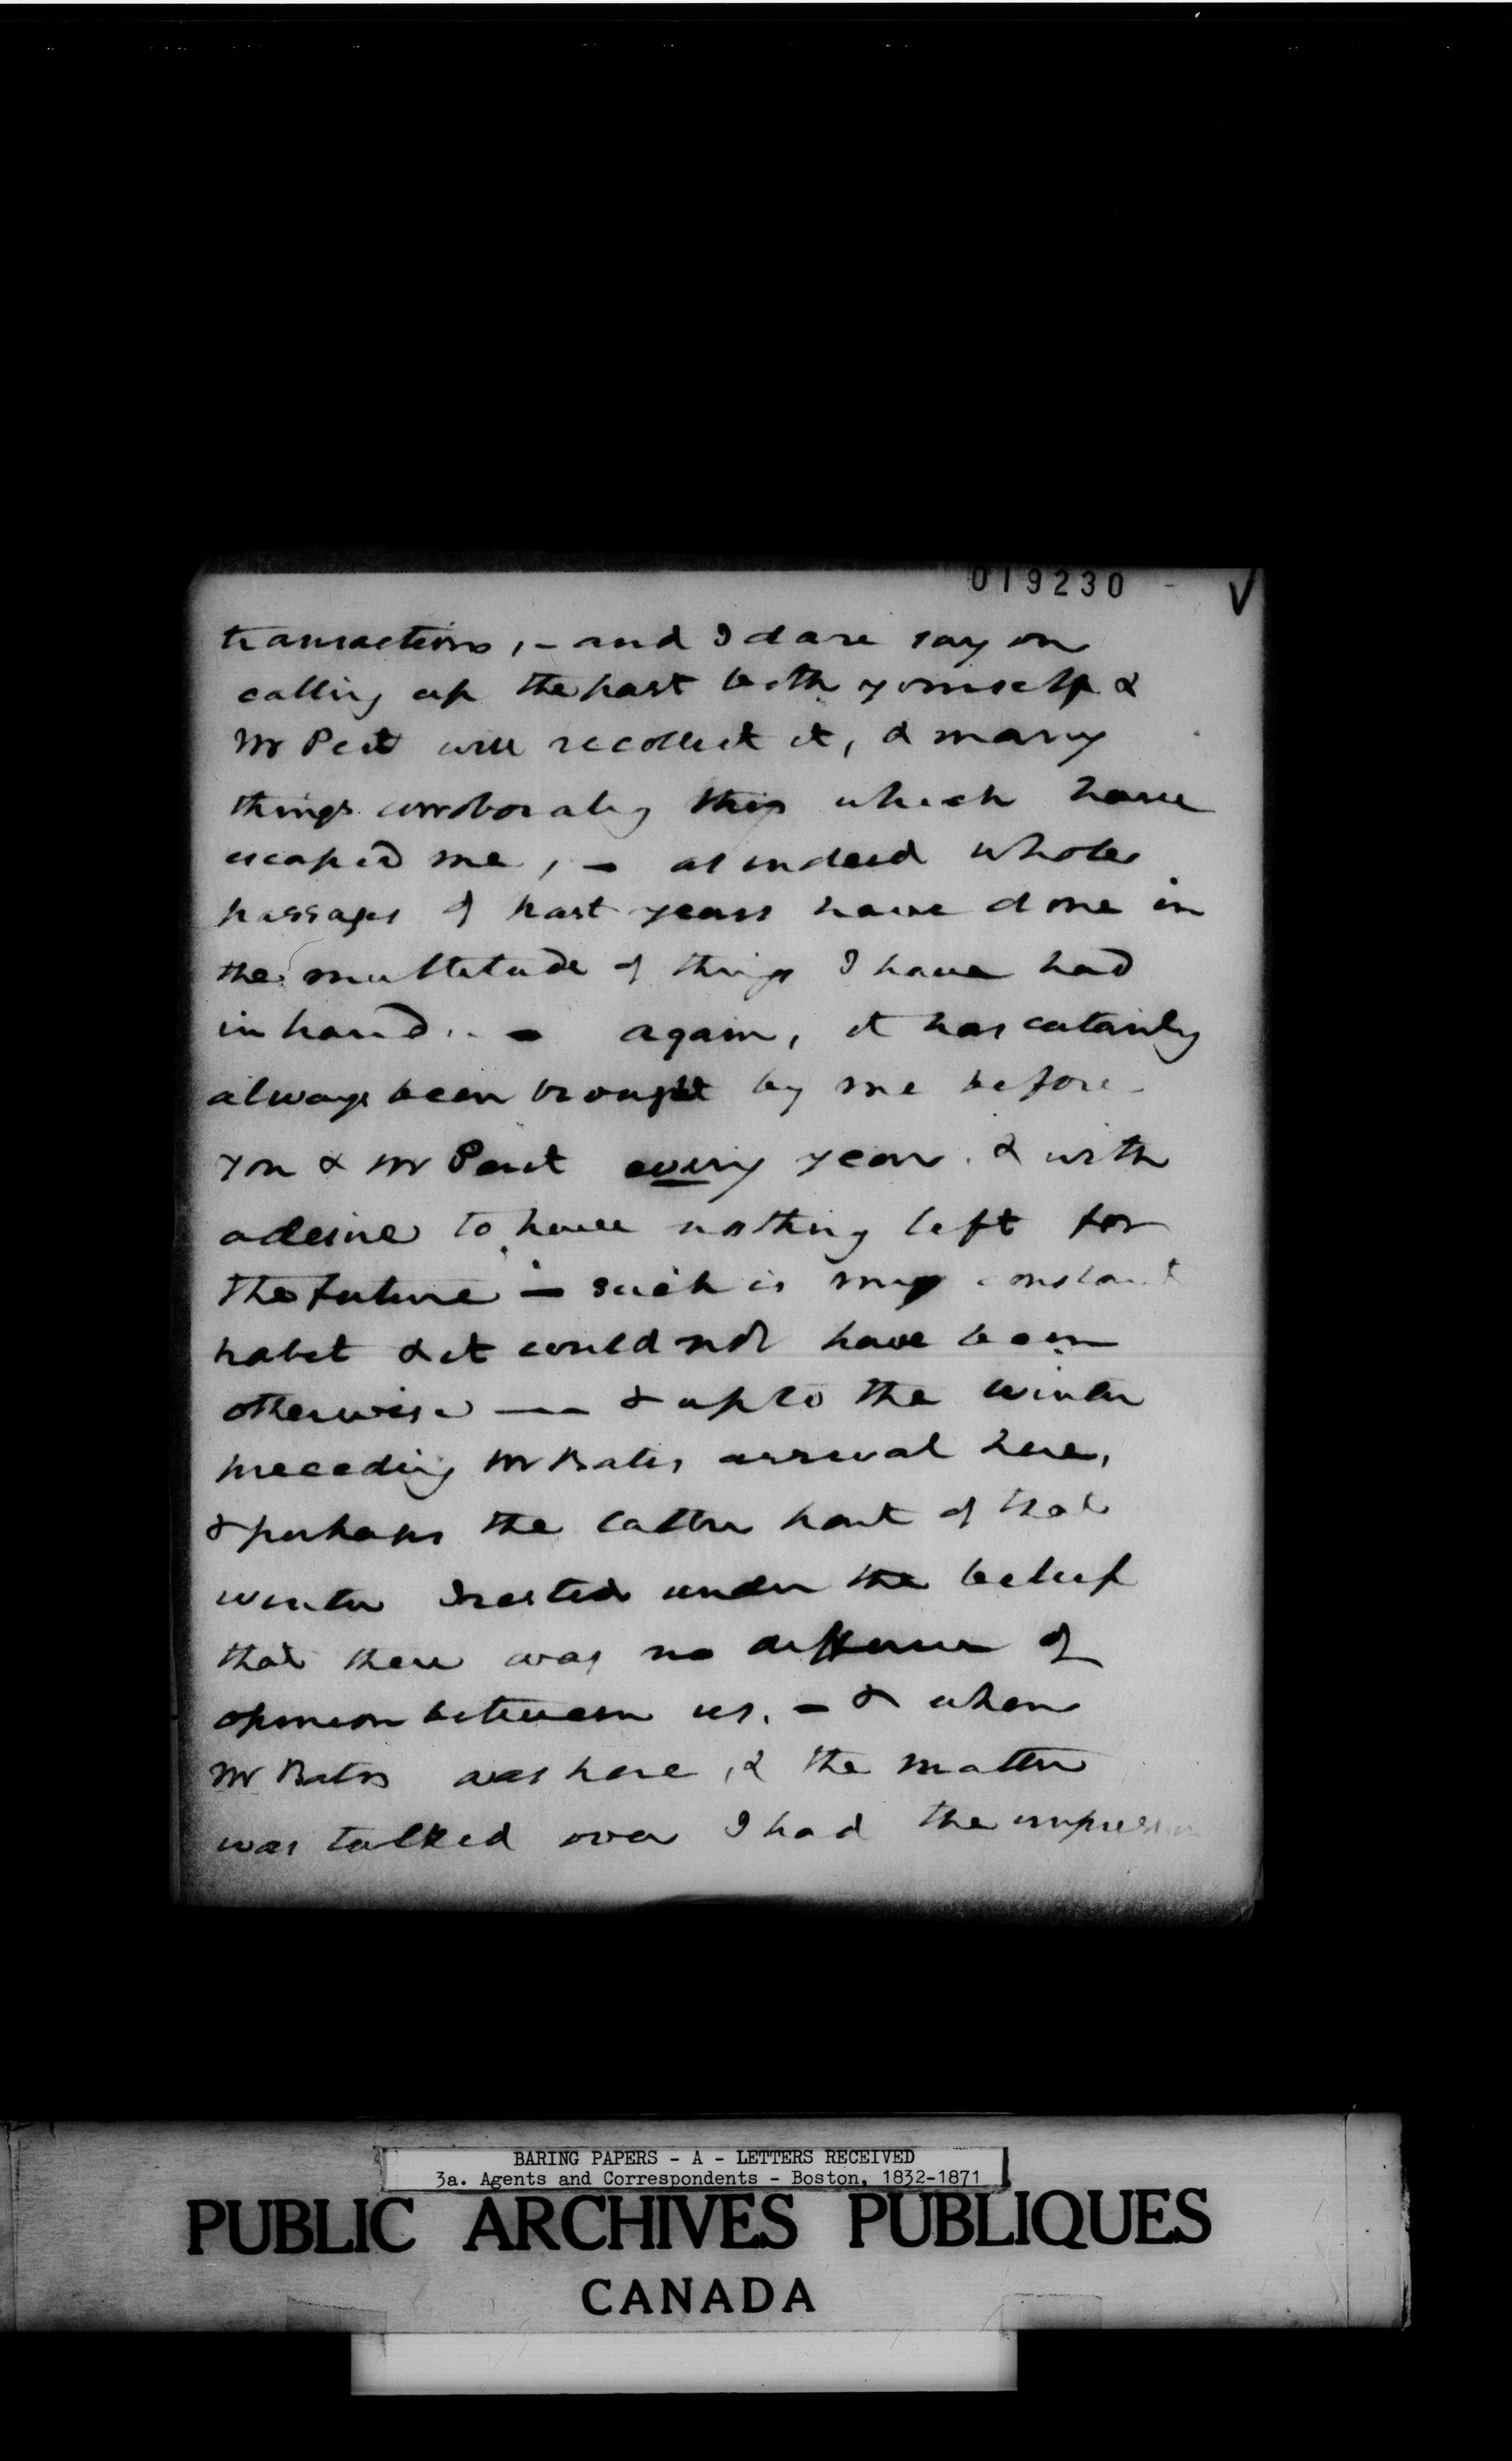 019230
transactions, - and I dare say on
calling up the past both yourself &
Mr Perit will recollect it, & many
things corroborating this which have
escaped me, - as indeed whole
passages of past years have done in
the multitude of things I have had
in hand. - again, it has certainly
always been brought by me before
you & Mr Perit every year. & with
a desire to have nothing left for
the future - such is my constant
habit & it could not have been
otherwise - & up to the winter
preceding Mr Bates arrival here,
& perhaps the latter part of that
winter I rested under the belief
that there was no difference of
opinion between us. - & when
Mr Bates was here, & the matter
was talked over I had the impression
BARING PAPERS - A - LETTERS RECEIVED
3a. Agents and Correspondents - Boston, 1832-1871
PUBLIC ARCHIVES PUBLIQUES
CANADA